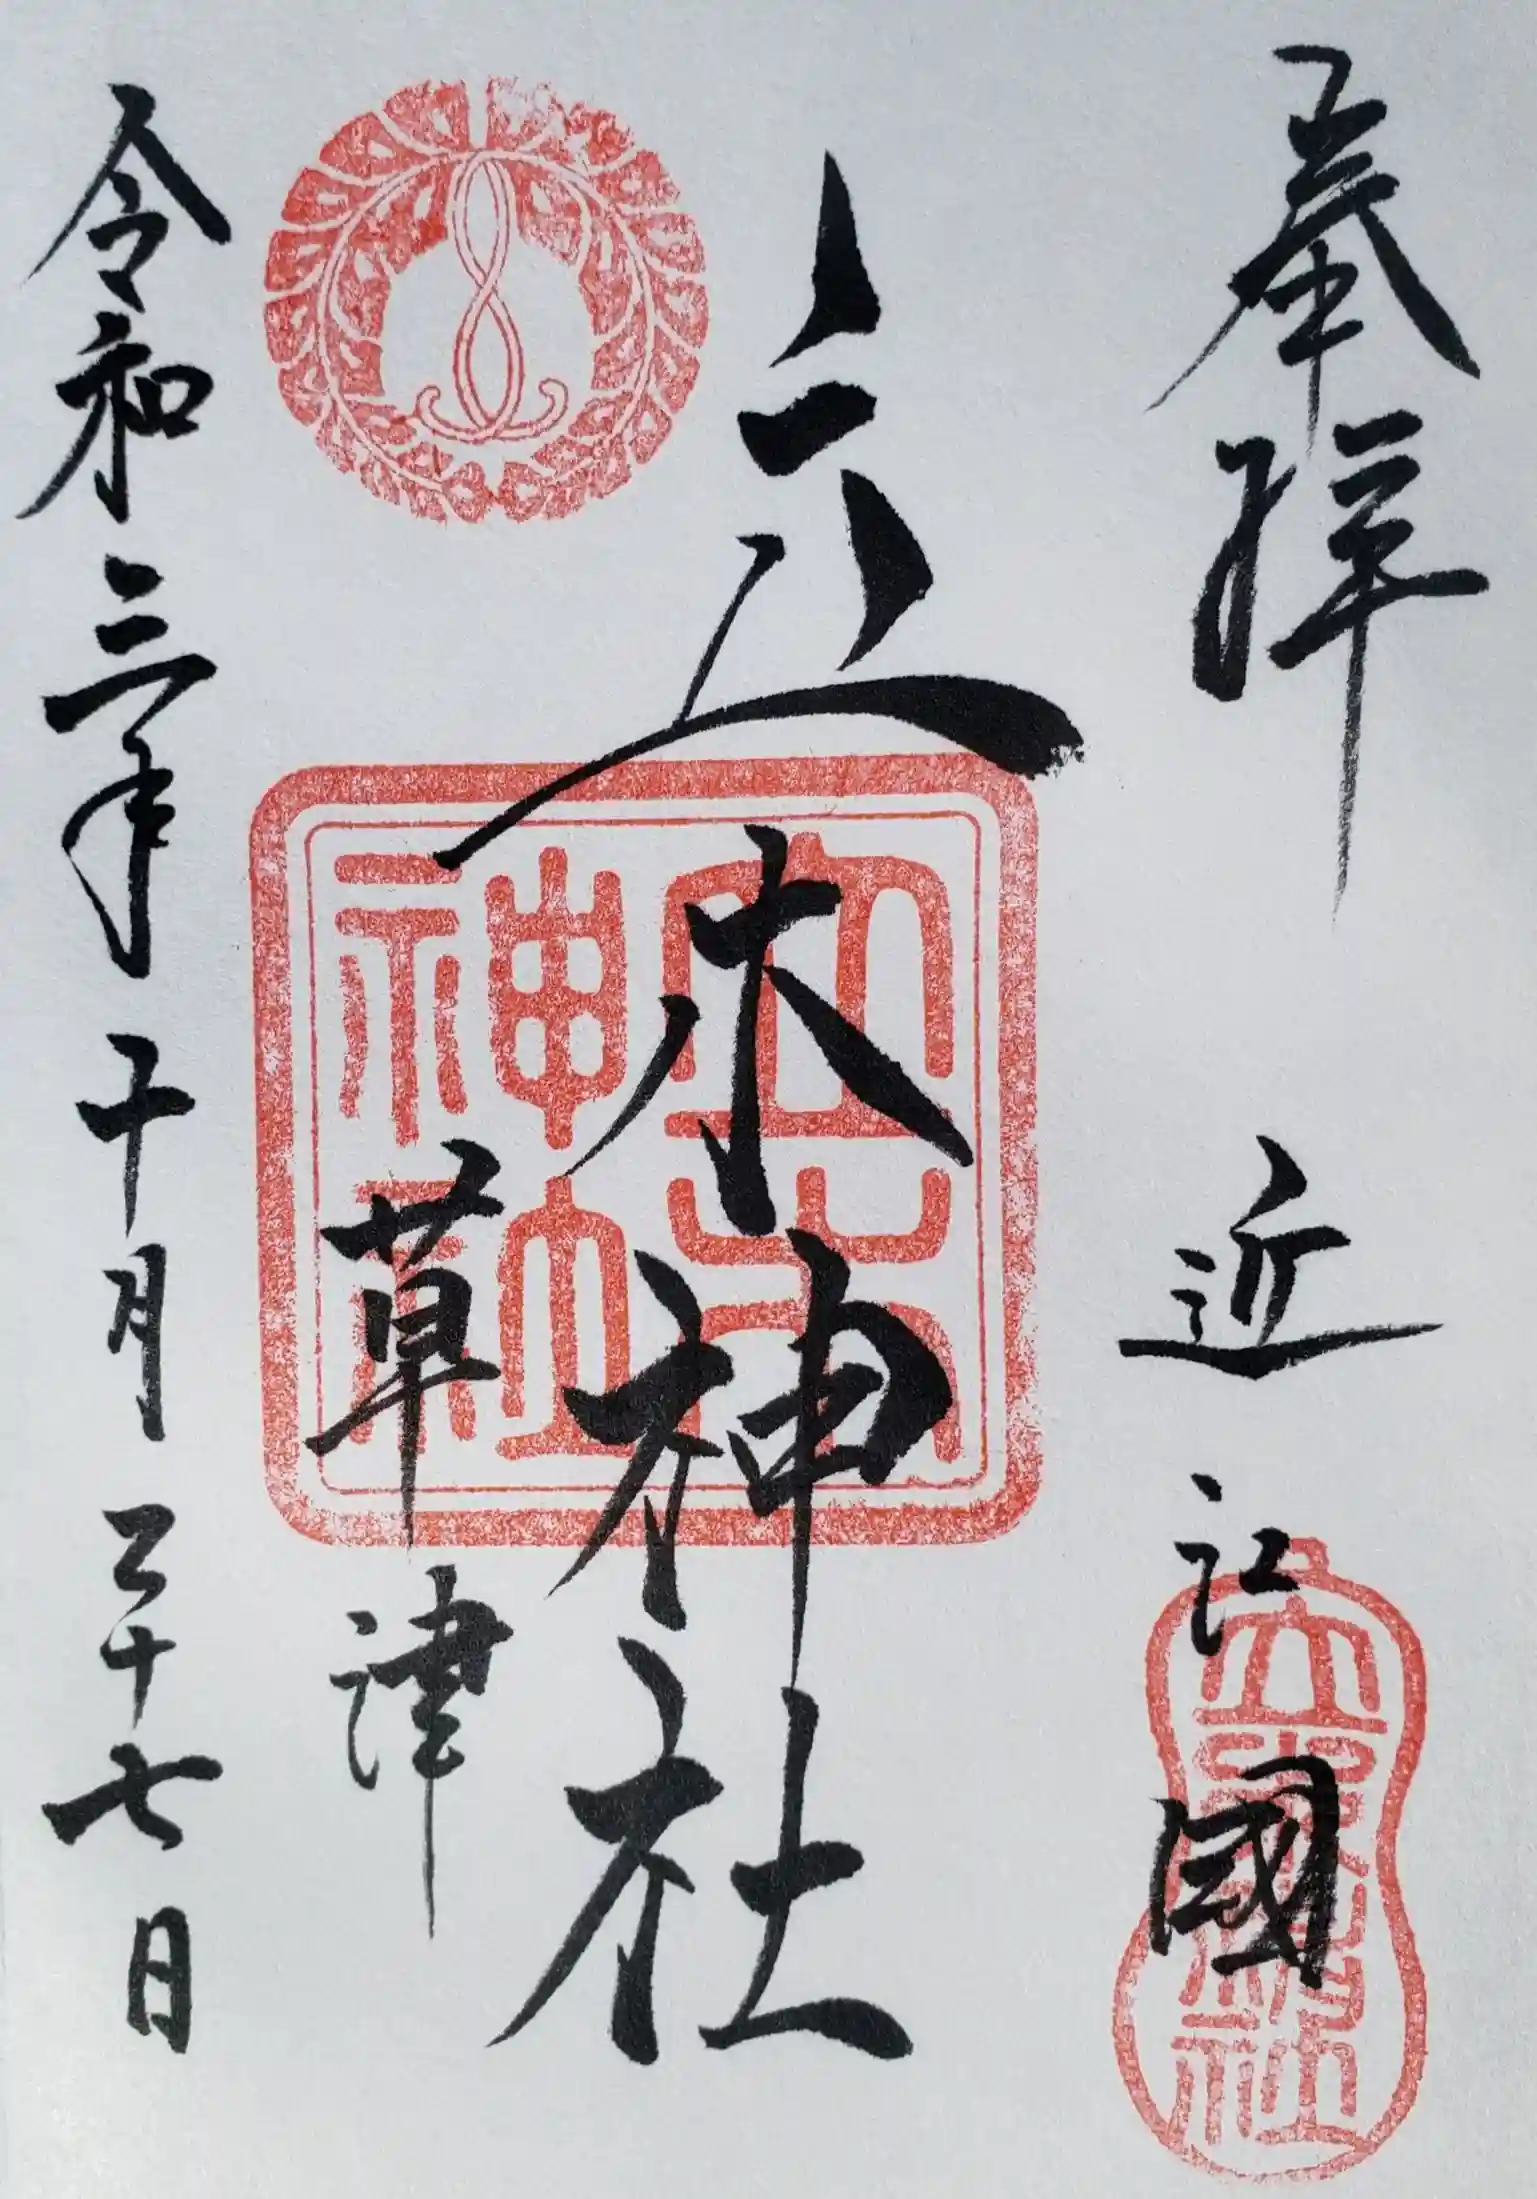 奉拝 近江國
立木神社
草津
令和三年十月二十七日
立木
神社